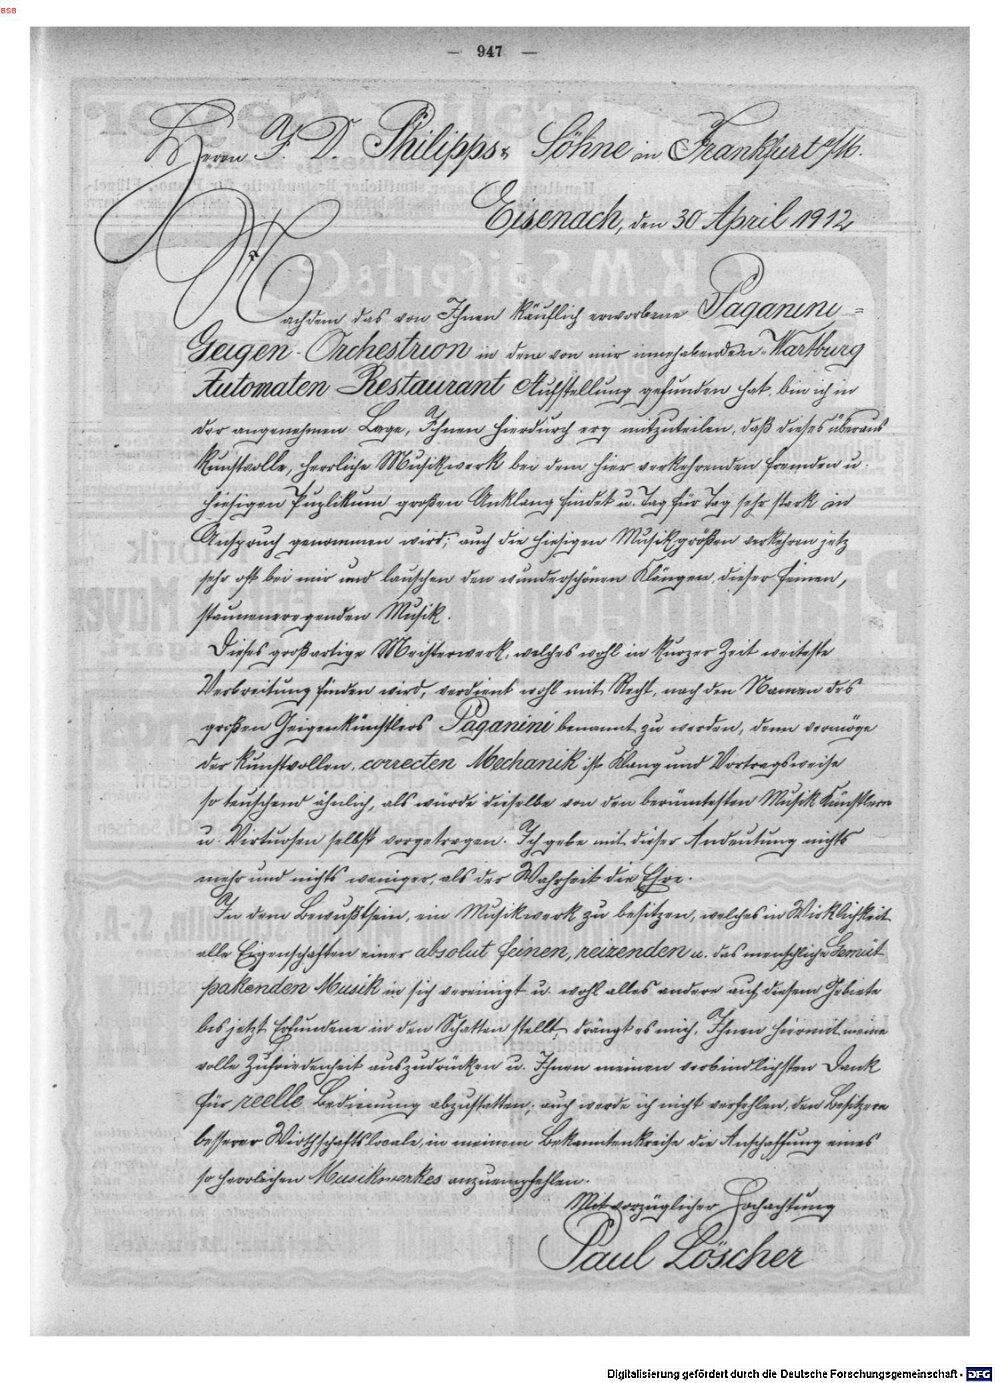 BSB
— 947 —
Herrn F. D. Philipps & Söhne in Frankfurt a/M.
Eisenach, den 30 April 1912
Nachdem das von Ihnen käuflich erworbene Paganini=
Geigen-Orchestrion in dem von mir innehabenden Wartburg
Automaten Restaurant Aufstellung gefunden hat, bin ich in
der angenehmen Lage, Ihnen hierdurch erg mitzuteilen, daß dieses überaus
kunstvolle, herrliche Musikwerk bei dem hier verkehrenden fremden u.
hiesigen Puplikum großen Anklang findet u. Tag für Tag sehr stark in
Anspruch genommen wird; auch die hiesigen Musikgrößen verkehren jetz
sehr oft bei mir und lauschen den wunderschönen Klängen, dieser feinen,
staunenerregenden Musik.
Dieses großartige Meisterwerk, welches wohl in kurzer Zeit weiteste
Verbreitung finden wird, verdient wohl mit Recht, nach den Namen des
großen Geigenkünstlers Paganini benannt zu werden, denn vermöge
der kunstvollen, correcten Mechanik ist Klang und Vortragsweise
so teuschend ähnlich, als würde dieselbe von den berümtesten Musik Künstlern
u. Virtuosen selbst vorgetragen. Ich gebe mit dieser Andeutung nichts
mehr und nichts weniger, als der Wahrheit die Ehre.
In dem Bewußtsein, ein Musikwerk zu besitzen, welches in Wirklichkeit
alle Eigenschaften einer absolut feinen, reizenden u. das menschliche Gemüt
pakenden Musik in sich vereinigt u. wohl alles andere auf diesem Gebiete
bis jetzt Erfundene in den Schatten stellt, drängt es mich, Ihnen hiermit meine
volle Zufriedenheit auszudrücken u. Ihnen meinen verbindlichsten Dank
für reelle Bedienung abzustatten; auch werde ich nicht verfehlen, den Besitzern
besserer Wirthschaftslocale, in meinem Bekanntenkreise die Anschaffung eines
so herrlichen Musikwerkes anzuempfehlen.
Mit vorzüglicher Hochachtung
Paul Löscher
Digitalisierung gefördert durch die Deutsche Forschungsgemeinschaft - DFG